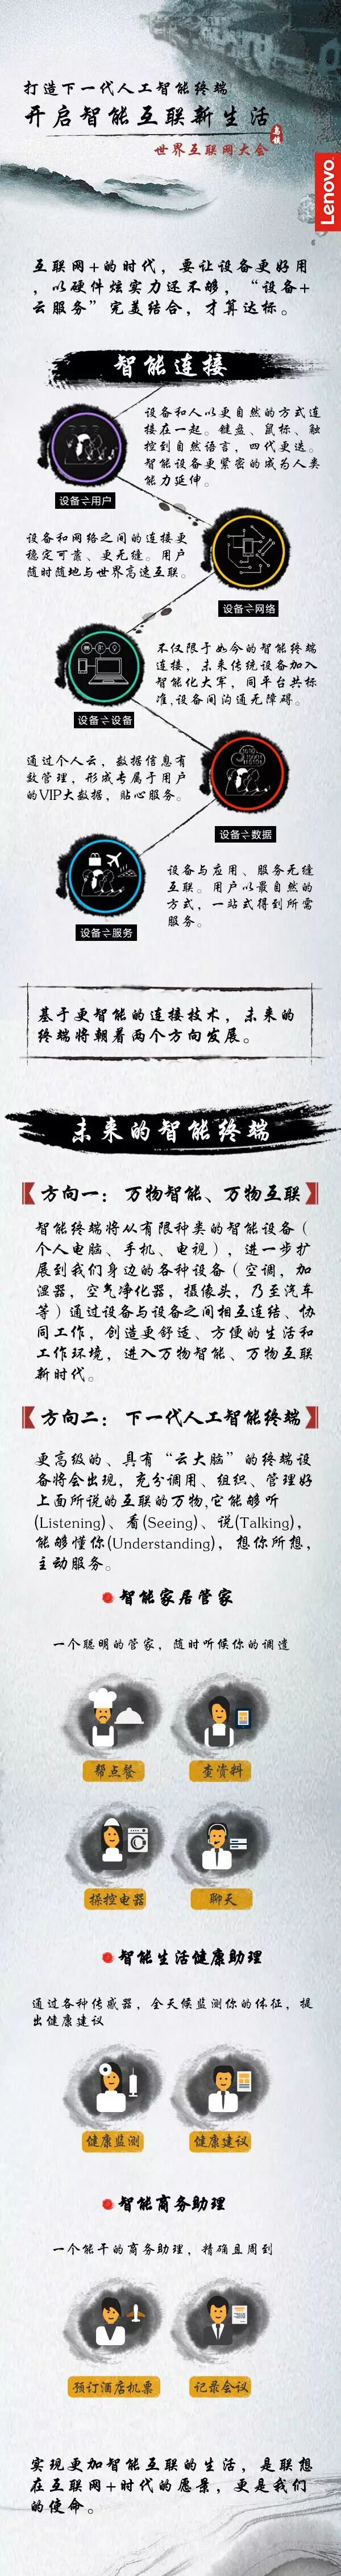 打造下一代人工智能终端
开启智能互联新生活
乌镇
世界互联网大会
Lenovo
互联网+的时代，要让设备更好用
，以硬件炫实力还不够，“设备+
云服务”完美结合，才算达标。
智能连接
设备和人以更自然的方式连
接在一起。键盘、鼠标、触
控到自然语言，四代更迭。
智能设备更紧密的成为人类
能力延伸。
设备⇌用户
设备和网络之间的连接更
稳定可靠、更无缝。用户
随时随地与世界高速互联。
设备⇌网络
不仅限于如今的智能终端
连接，未来传统设备加入
智能化大军，同平台共标
准,设备间沟通无障碍。
设备⇌设备
通过个人云，数据信息有
效管理，形成专属于用户
的VIP大数据，贴心服务。
设备⇌数据
设备与应用、服务无缝
互联。用户以最自然的
方式，一站式得到所需
服务。
设备⇌服务
基于更智能的连接技术，未来的
终端将朝着两个方向发展。
未来的智能终端
方向一：万物智能、万物互联
智能终端将从有限种类的智能设备（
个人电脑、手机、电视），进一步扩
展到我们身边的各种设备（空调，加
湿器，空气净化器，摄像头，乃至汽车
等）通过设备与设备之间相互连结、协
同工作，创造更舒适、方便的生活和
工作环境，进入万物智能、万物互联
新时代。
方向二：下一代人工智能终端
更高级的、具有“云大脑”的终端设
备将会出现，充分调用、组织、管理好
上面所说的互联的万物,它能够听
(Listening)、看(Seeing)、说(Talking)，
能够懂你(Understanding)，想你所想，
主动服务。
智能家居管家
一个聪明的管家，随时听候你的调遣
帮点餐
查资料
操控电器
聊天
智能生活健康助理
通过各种传感器，全天候监测你的体征，提
出健康建议
健康监测
健康建议
智能商务助理
一个能干的商务助理，精确且周到
预订酒店机票
记录会议
实现更加智能互联的生活，是联想
在互联网+时代的愿景，更是我们
的使命。